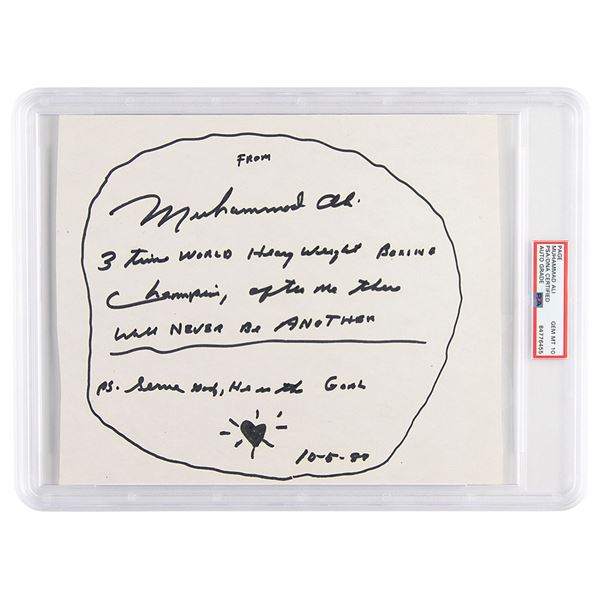 FROM
Muhammad Ali.
3 time WORLD Heavy Weight BOXING
Champion, after me there
will NEVER Be ANOTHER
PS. Serve God, He is the GOAL
PAGE
MUHAMMAD ALI
PSA/DNA CERTIFIED
AUTO GRADE
GEM MT 10
84776455
PSA